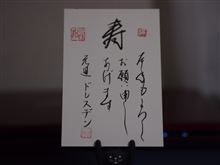 寿
本年もよろしく
お願い申し
あげます
元旦 ドレスデン